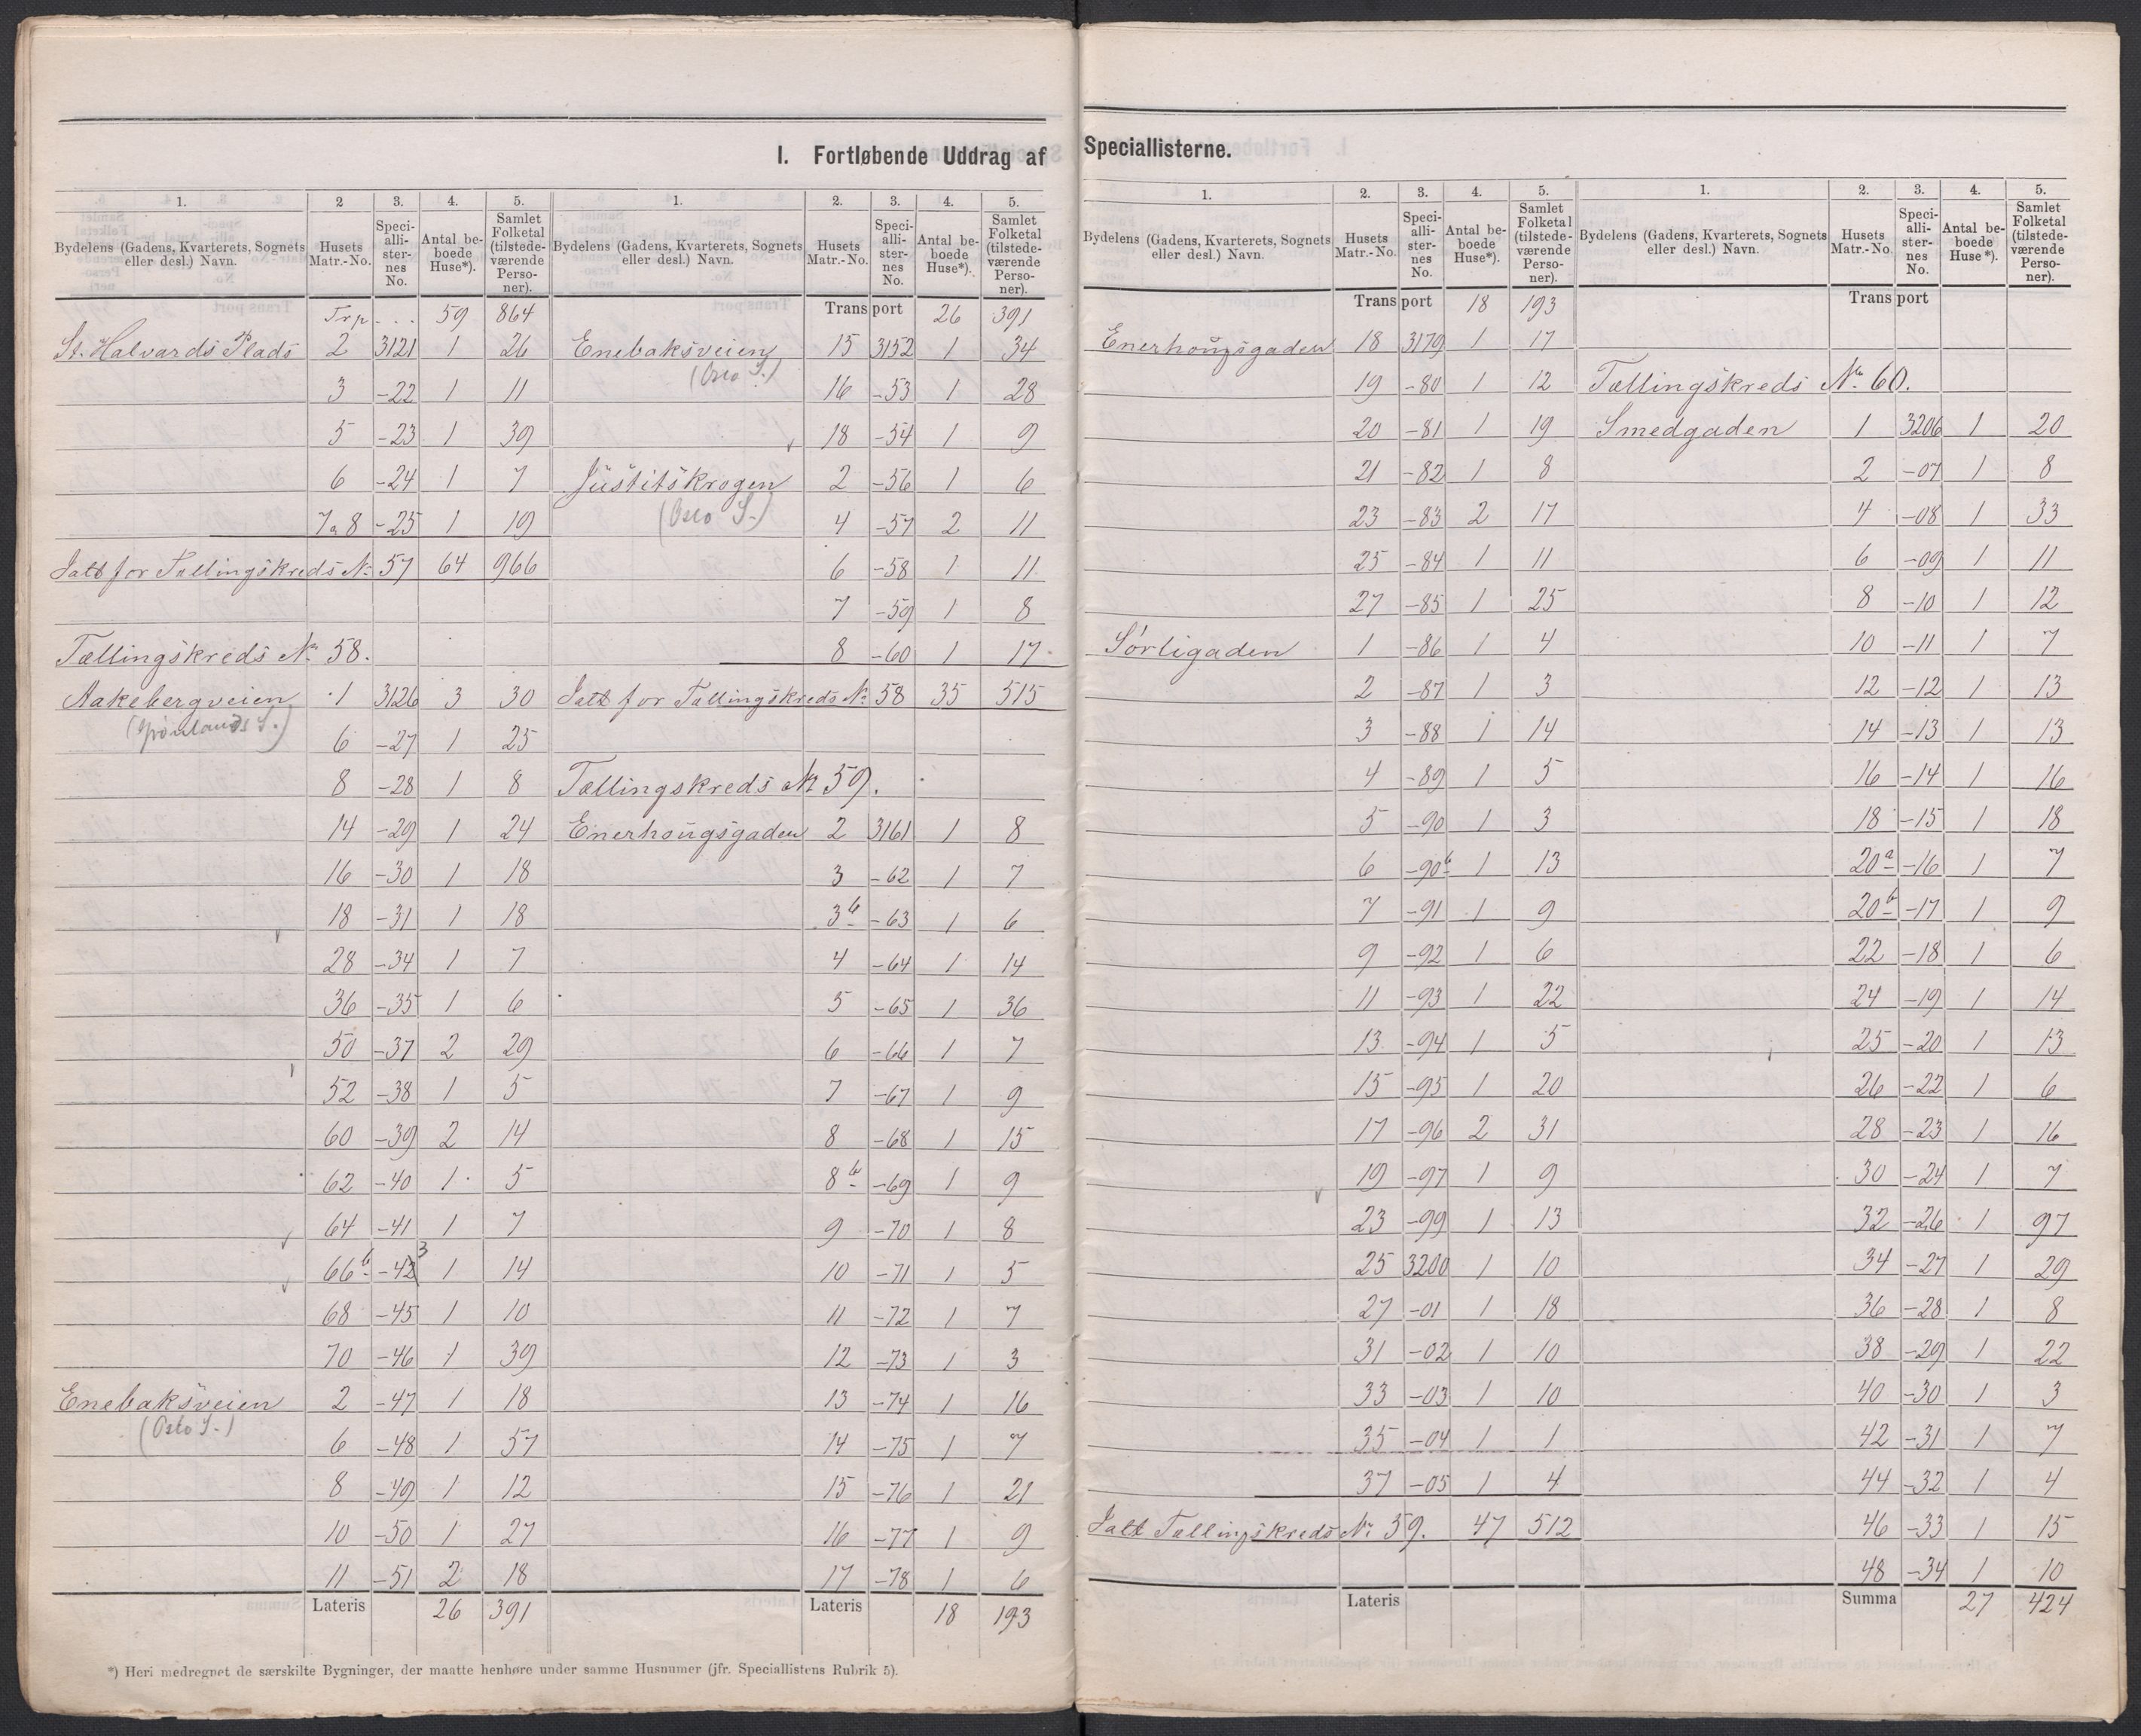 I. Fortløbende Uddrag af Speciallisterne.
1. 2 3. 4. 5. 1. 2. 3. 4. 5.
Bydelens (Gadens, Kvarterets, Sognets eller desl.) Navn. Husets Matr.-No. Speci-alli-ster-nes No. Antal be-boede Huse*). Samlet Folketal (tilstede-værende Perso-ner). Bydelens (Gadens, Kvarterets, Sognets eller desl.) Navn. Husets Matr.-No. Speci-alli-ster-nes No. Antal be-boede Huse*). Samlet Folketal (tilstede-værende Perso-ner).
Trp. . . 59 864
St. Halvards Plads 2 3121 1 26
3 -22 1 11
5 -23 1 39
6 -24 1 7
7 a 8 -25 1 19
Ialt for Tællingskreds No 57 64 966
Tællingskreds No 58.
Aakebergveien 1 3126 3 30
(Grønlands S.)
6 -27 1 25
8 -28 1 8
14 -29 1 24
16 -30 1 18
18 -31 1 18
28 -34 1 7
36 -35 1 6
50 -37 2 29
52 -38 1 5
60 -39 2 14
62 -40 1 5
64 -41 1 7
66b -43 1 14
68 -45 1 10
70 -46 1 39
Enebaksveien 2 -47 1 18
(Oslo S.)
6 -48 1 57
8 -49 1 12
10 -50 1 27
11 -51 2 18
Lateris 26 391
Transport 26 391
Enebaksveien 15 3152 1 34
(Oslo S.)
16 -53 1 28
18 -54 1 9
Justitskrogen 2 -56 1 6
(Oslo S.)
4 -57 2 11
6 -58 1 11
7 -59 1 8
8 -60 1 17
Ialt for Tællingskreds No 58 35 515
Tællingskreds No 59.
Enerhougsgaden 2 3161 1 8
3 -62 1 7
3b -63 1 6
4 -64 1 14
5 -65 1 36
6 -66 1 7
7 -67 1 9
8 -68 1 15
8b -69 1 9
9 -70 1 8
10 -71 1 5
11 -72 1 7
12 -73 1 3
13 -74 1 16
14 -75 1 7
15 -76 1 21
16 -77 1 9
17 -78 1 6
Lateris 18 193
*) Heri medregnet de særskilte Bygninger, der maatte henhøre under samme Husnumer (jfr. Speciallistens Rubrik 5).
1. 2. 3. 4. 5. 1. 2. 3. 4. 5.
Bydelens (Gadens, Kvarterets, Sognets eller desl.) Navn. Husets Matr.-No. Speci-alli-ster-nes No. Antal be-boede Huse*). Samlet Folketal (tilstede-værende Perso-ner). Bydelens (Gadens, Kvarterets, Sognets eller desl.) Navn. Husets Matr.-No. Speci-alli-ster-nes No. Antal be-boede Huse*). Samlet Folketal (tilstede-værende Perso-ner).
Transport 18 193
Enerhougsgaden 18 3179 1 17
19 -80 1 12
20 -81 1 19
21 -82 1 8
23 -83 2 17
25 -84 1 11
27 -85 1 25
Sørligaden 1 -86 1 4
2 -87 1 3
3 -88 1 14
4 -89 1 5
5 -90 1 3
6 -90b 1 13
7 -91 1 9
9 -92 1 6
11 -93 1 22
13 -94 1 5
15 -95 1 20
17 -96 2 31
19 -97 1 9
23 -99 1 13
25 3200 1 10
27 -01 1 18
31 -02 1 10
33 -03 1 10
35 -04 1 1
37 -05 1 4
Ialt Tællingskreds No 59. 47 512
Lateris
Transport
Tællingskreds No 60.
Smedgaden 1 3206 1 20
2 -07 1 8
4 -08 1 33
6 -09 1 11
8 -10 1 12
10 -11 1 7
12 -12 1 13
14 -13 1 13
16 -14 1 16
18 -15 1 18
20a -16 1 7
20b -17 1 9
22 -18 1 6
24 -19 1 14
25 -20 1 13
26 -22 1 6
28 -23 1 16
30 -24 1 7
32 -26 1 97
34 -27 1 29
36 -28 1 8
38 -29 1 22
40 -30 1 3
42 -31 1 7
44 -32 1 4
46 -33 1 15
48 -34 1 10
Summa 27 424